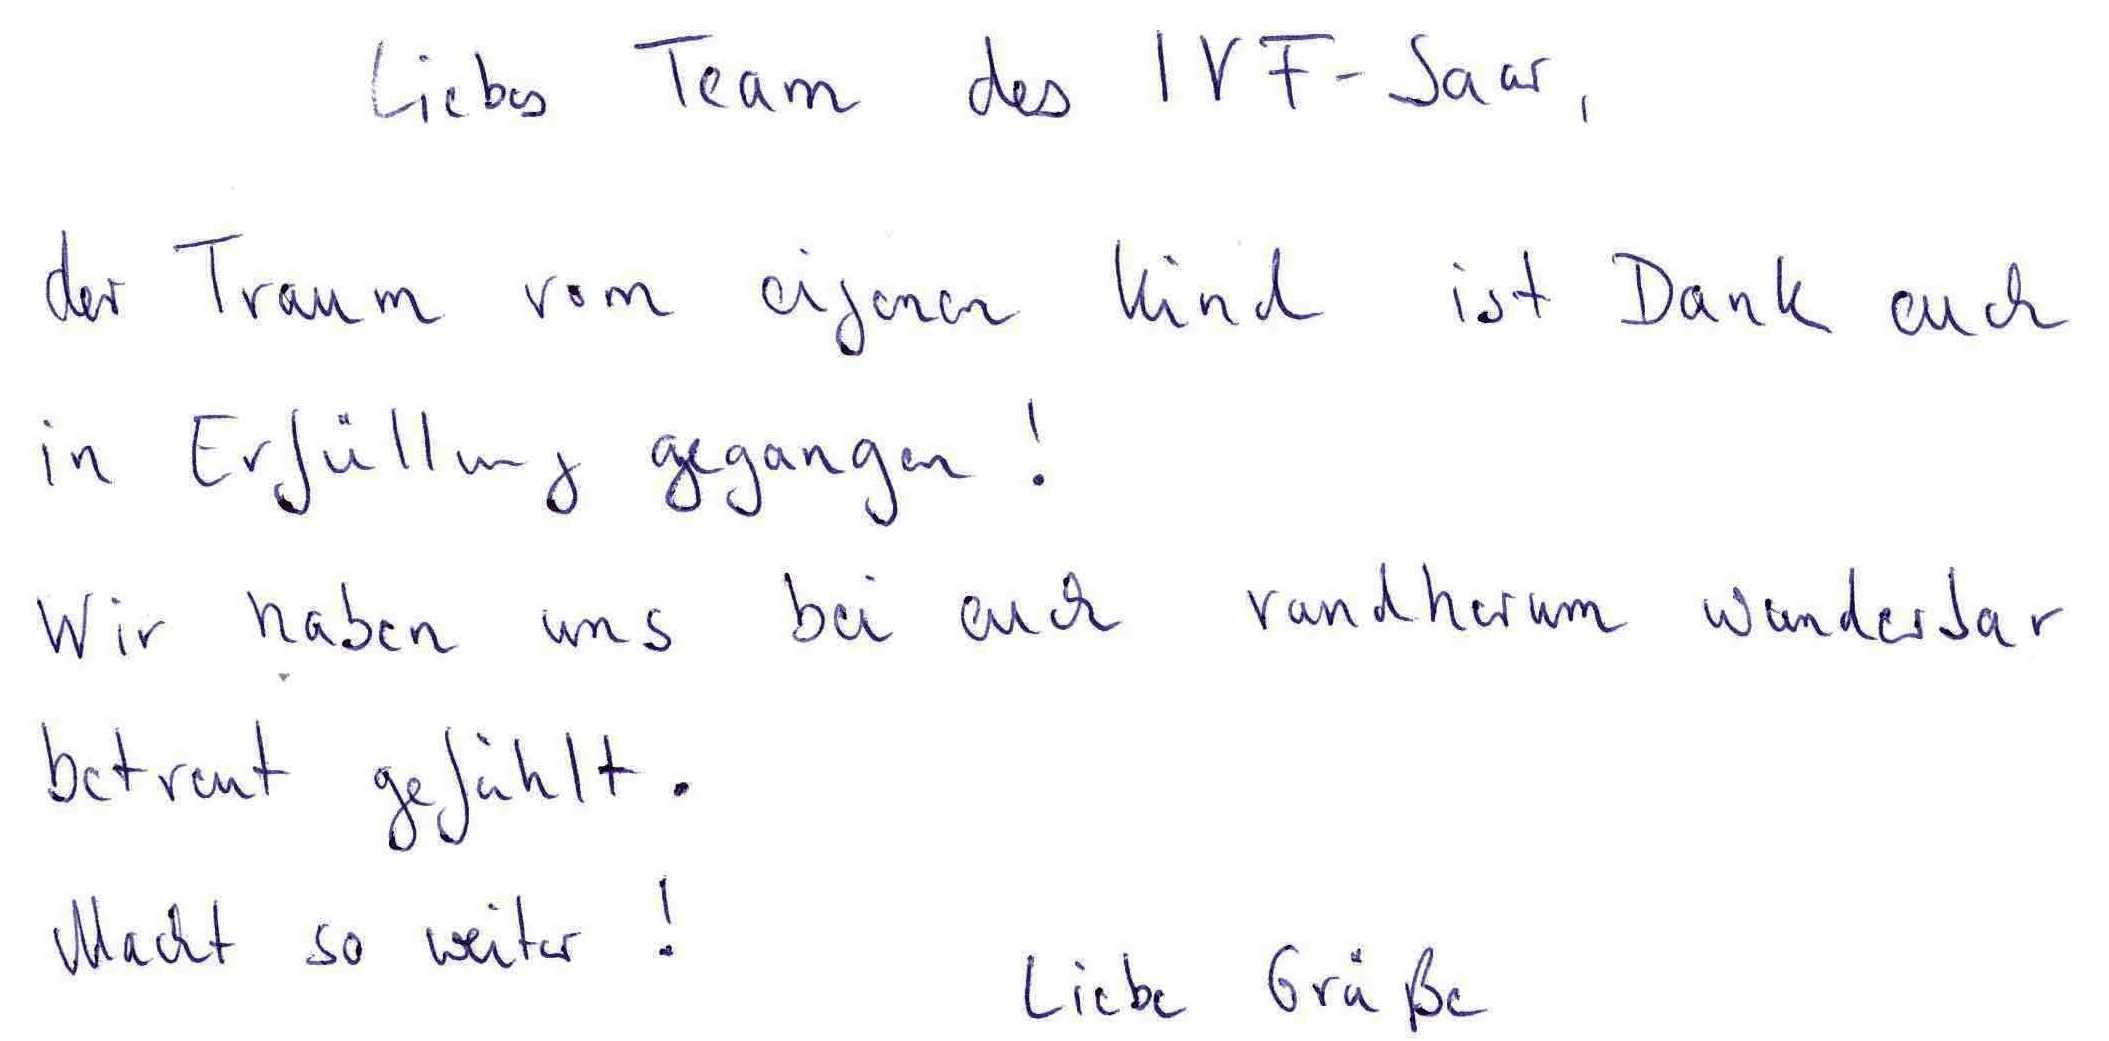 Liebes Team des IVF-Saar,
der Traum vom eigenen Kind ist Dank euch
in Erfüllung gegangen!
Wir haben uns bei euch rundherum wunderbar
betreut gefühlt.
Macht so weiter!
Liebe Grüße